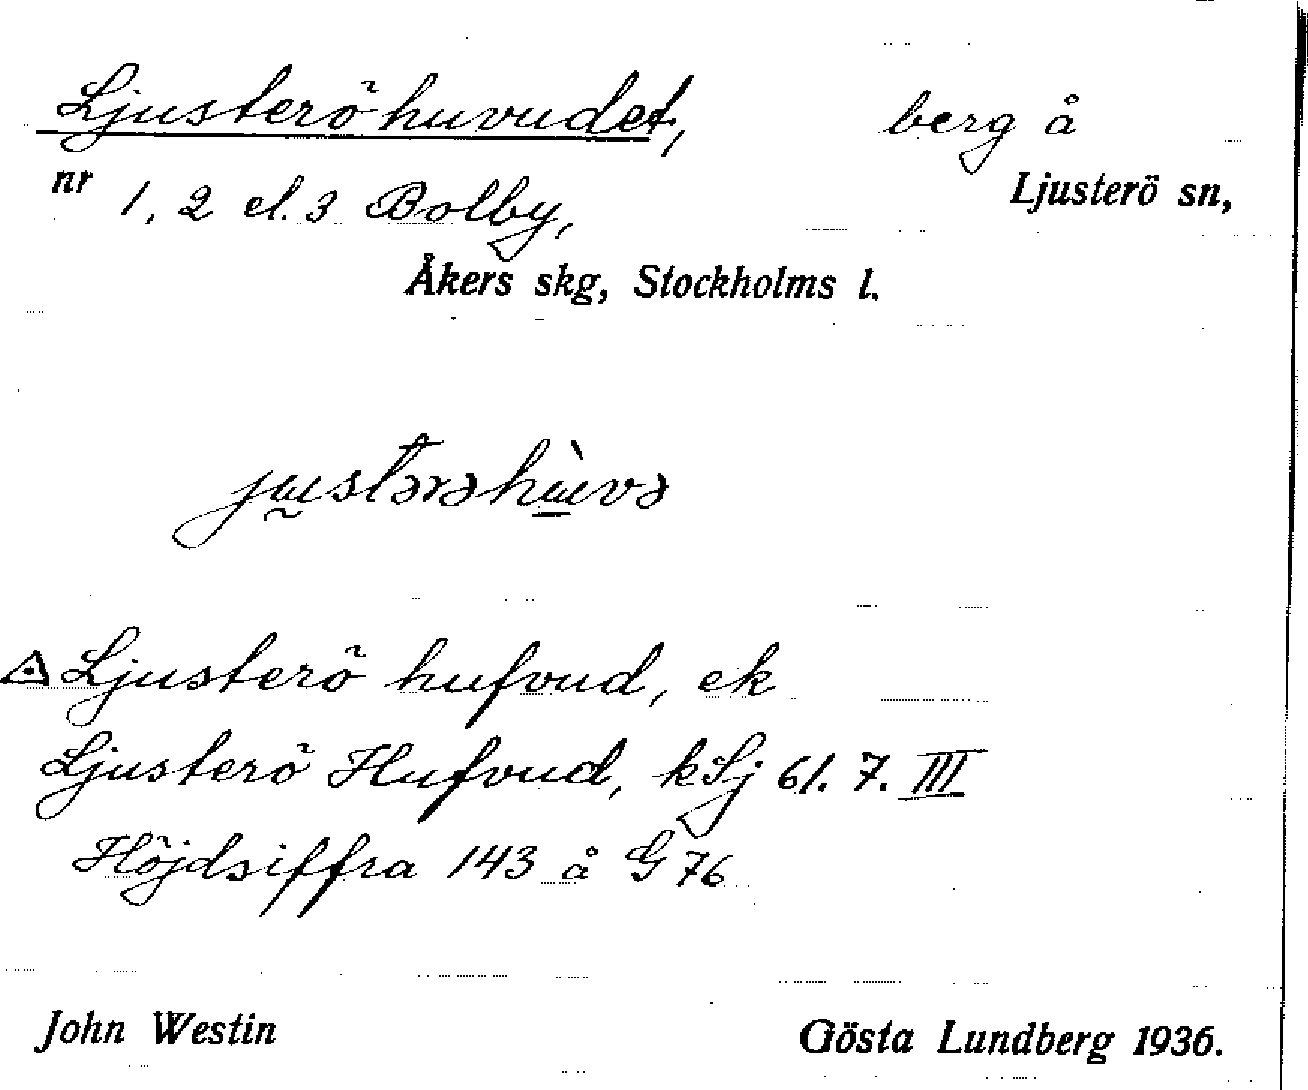 Ljusteröhuvudet, berg å
nr 1, 2 el. 3 Bolby, Ljusterö sn,
Åkers skg, Stockholms l.
Ljusterö hufvud, ek
Ljusterö Hufvud, kSj 61. 7. III
Höjdsiffra 143 å G 76
John Westin Gösta Lundberg 1936.